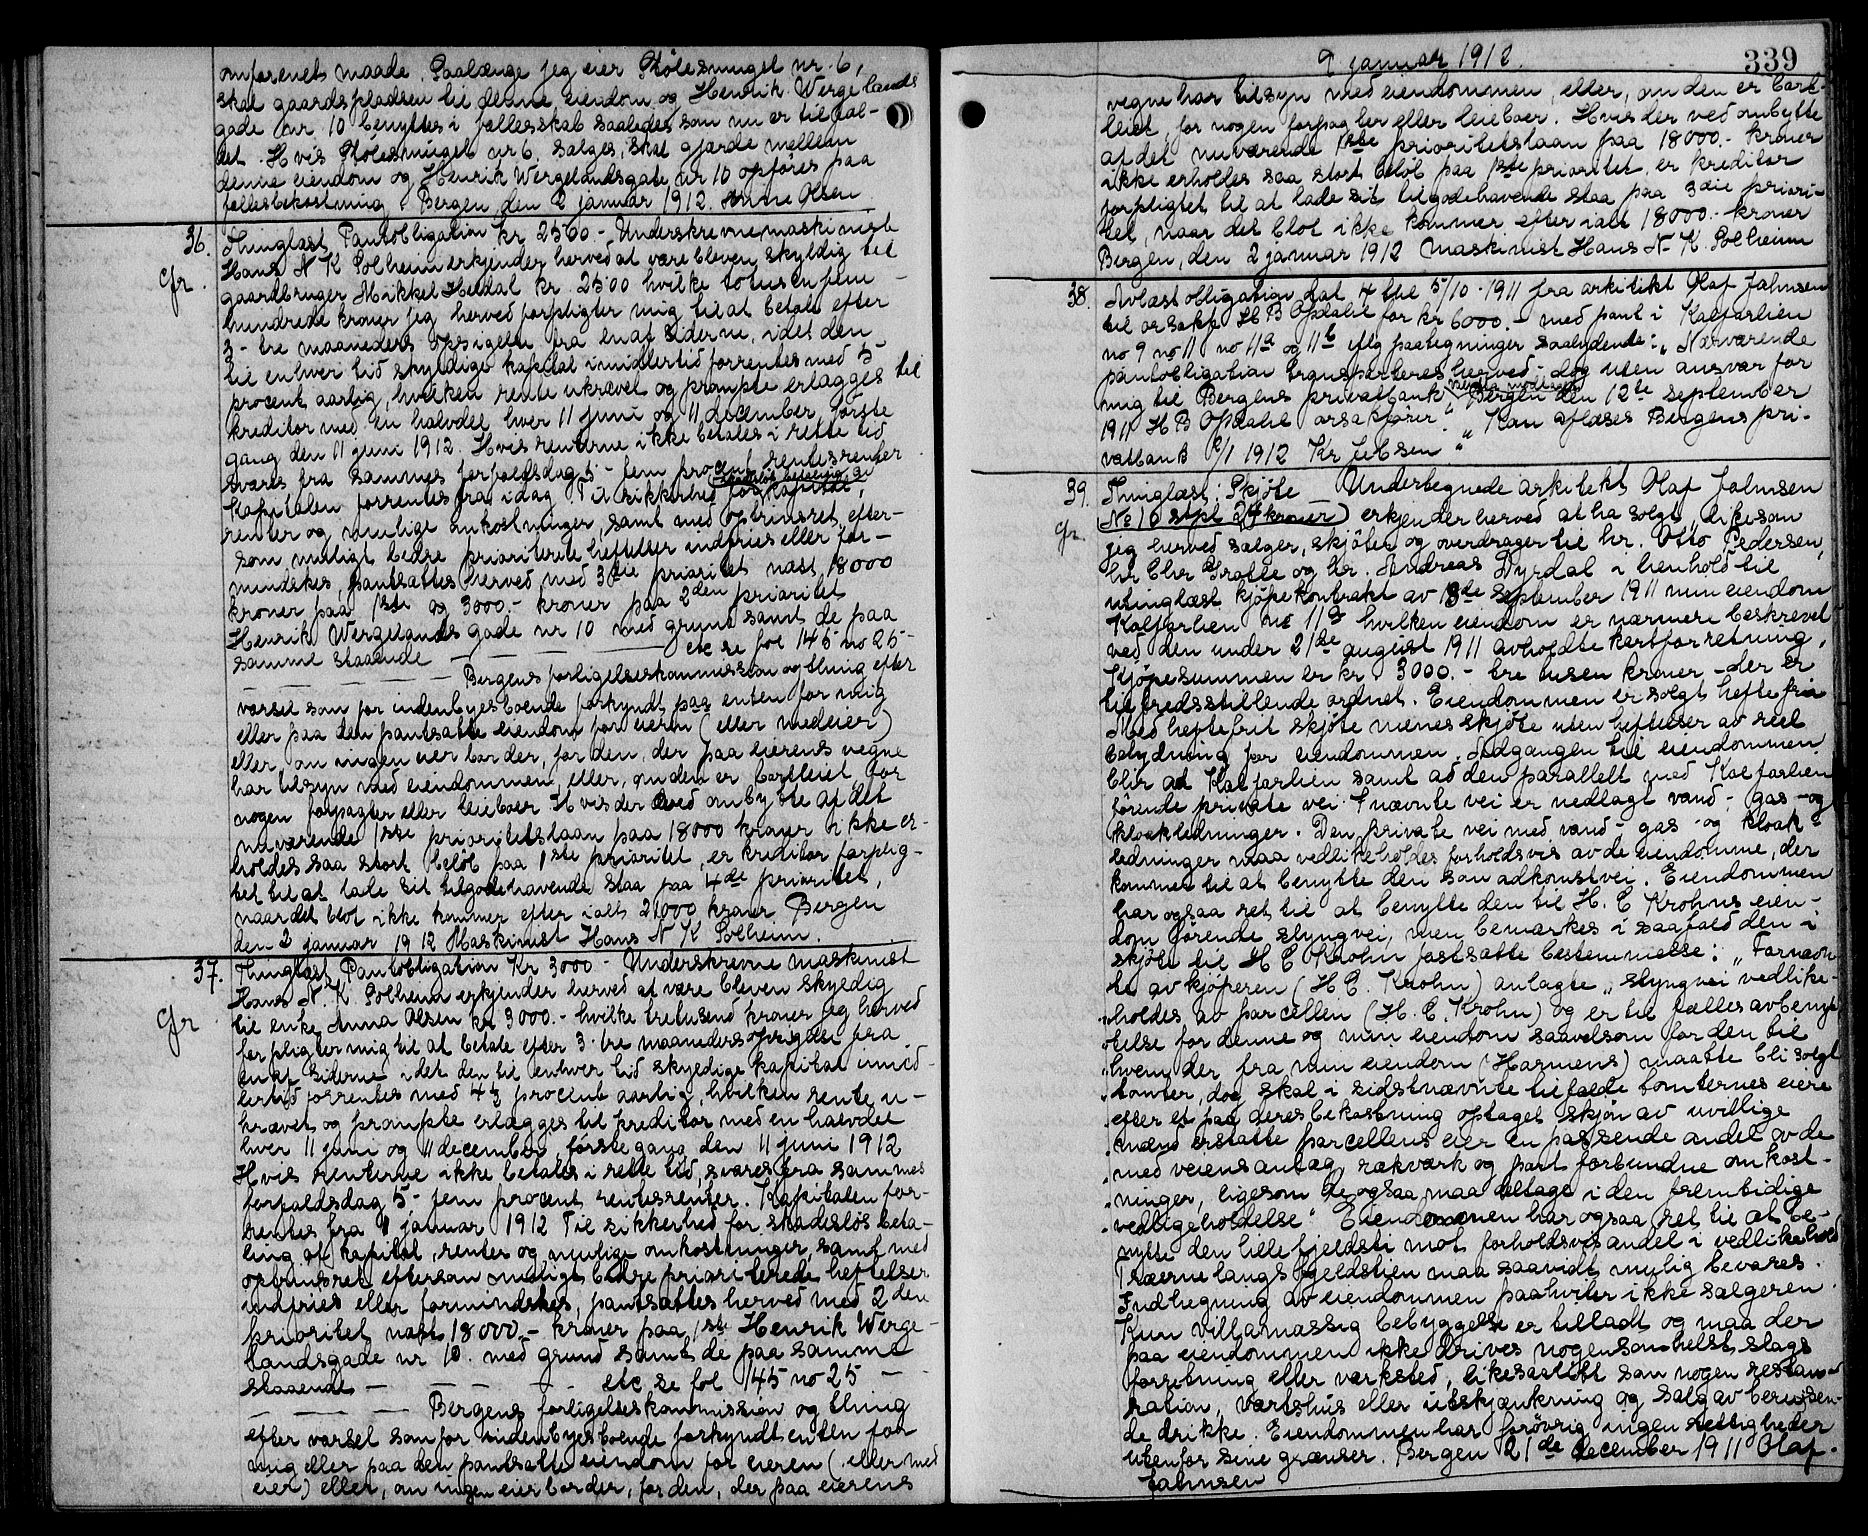 omforenet maade. Saalænge jeg eier Stølesmuget nr. 6,
skal gaardspladsen til denne eiendom og Henrik Wergelands
gade nr. 10 benyttes i fællesskab saaledes som nu er tilfæl-
det. Hvis Stølesmuget nr 6 sælges, skal gjærde mellem
denne eiendom og Henrik Wergelandsgate nr 10 opføres paa
fællesbekostning. Bergen den 2 januar 1912. Anne Olsen
36. Thinglæst Pantobligation kr 2500.- "Underskrevne maskinist
Hans N K Solheim erkjender herved at være bleven skyldig til
gr. gaardbruger Mikkel Heldal kr. 2500 hvilke totusen fem
hundrede kroner jeg herved forpligter mig til at betale efter
3 - tre maaneders opsigelse fra en af siderne, idet den
til enhver tid skyldige kapital imidlertid forrentes med 5
procent aarlig, hvilken rente ukrævet og prompte erlægges til
kreditor med en halvdel hver 11 juni og 11 december, første
gang den 11 juni 1912. Hvis renterne ikke betales i rette tid
svares fra sammes forfaldsdag 5 - fem procent rentesrenter
Kapitalen forrentes fra idag Til sikkerhed for skadesløs betaling av kapital,
renter og mulige omkostninger, samt med oprinsret, efter-
som muligt bedre prioriterede heftelser indfries eller for-
mindskes, pantsættes herved med 3die prioritet næst 18000
kroner paa 1ste og 3000.- kroner paa 2den prioritet
Henrik Wergelands gade nr 10 med grund samt de paa
samme staaende — — — — etc se fol 145 no 25 -
— — — — Bergens forligelseskommission og thing efter
varsel som for indenbyesboende forkyndt paa enten for mig
eller paa den pantsatte eiendom for eieren (eller medeier)
eller, om ingen eier bor der, for den, der paa eierens vegne
har tilsyn med eiendommen, eller, om den er bortleiet, for
nogen forpagter eller leieboer Hvis der ved ombytte af det
nuværende 1ste prioritetslaan paa 18000 kroner ikke er-
holdes saa stort beløb paa 1ste prioritet, er kreditor forplig-
tet til at lade sit tilgodehavende staa paa 4de prioritet,
naar det blot ikke kommer efter ialt 21000 kroner Bergen
den 2 januar 1912 Maskinist Hans N K Solheim.
37. Thinglæst Pantobligation Kr 3000 - Underskrevne maskinist
Hans N. K. Solheim erkjender herved at være bleven skyldig
gr til enke Anna Olsen kr 3000.- hvilke tretusend kroner jeg herved
forpligter mig til at betale efter 3 - tre maaneders opsigelse fra
en af siderne idet den til enhver tid skyldige kapital imid-
lertid forrentes med 4½ procent aarlig, hvilken rente u-
krævet og prompte erlægges til kreditor med en halvdel
hver 11 juni og 11 december, første gang den 11 juni 1912
Hvis renterne ikke betales i rette tid, svares fra sammes
forfaldsdag 5 - fem procent rentesrenter. Kapitalen for-
rentes fra 1 januar 1912 Til sikkerhed for skadesløs beta-
ling af kapital, renter og mulige omkostninger, samt med
oprinsret eftersom muligt bedre prioriterede heftelser
indfries eller formindskes, pantsættes herved med 2den
prioritet næst 18000.- kroner paa 1ste Henrik Werge-
landsgade nr 10. med grund samt de paa samme
staaende — — — — etc se fol 145 no 25 —
— — — — Bergens forligelseskommission og thing
efter varsel som for indenbyesboende forkyndt enten for
mig eller paa den pantsatte eiendom for eieren (eller med
eier) eller, om ingen eier bor der, for den, der paa eierens
2 januar 1912. 339
vegne har tilsyn med eiendommen, eller, om den er bort-
leiet, for nogen forpagter eller leieboer. Hvis der ved ombytte
af det nuværende 1ste prioritetslaan paa 18000.- kroner
ikke erholdes saa stort beløb paa 1ste prioritet, er kreditor
forpligtet til at lade sit tilgodehavende staa paa 3die priori-
tet, naar det blot ikke kommer efter ialt 18000.- kroner
Bergen, den 2 januar 1912 Maskinist Hans N. K. Solheim
38. Avlæst obligation dat 4 thl 5/10 - 1911 fra arkitekt Olaf Jahnsen
til orsakfr H B Opdahl for kr 6000.- med pant i Kalfarlien
no 9 no 11 no 11a og 11b iflg paategninger saalydende: "Nærværende
pantobligation transporteres herved - dog uten ansvar for
mig til Bergens privatbank valuta modtaget Bergen den 12te september
1911 H B Opdahl orsakfører." "Kan aflæses Bergens pri-
vatbank 2/1 1912 Kr Jebsen"
39. Thinglæst: Skjøte Undertegnede arkitekt Olaf Jahnsen
(No 10 stpl 24 kroner) erkjender herved at ha solgt, likesom
gr. jeg herved sælger, skjøter og overdrager til hr. Otto Pedersen,
hr Chr Grotle og hr. Andreas Dyrdal i henhold til
thinglæst kjøpekontrakt av 13de september 1911 min eiendom
Kalfarlien no 11a hvilken eiendom er nærmere beskrevet
ved den under 21de august 1911 avholdte kartforretning.
Kjøpesummen er kr 3000.- tre tusen kroner - der er
tilfredsstillende ordnet. Eiendommen er solgt heftefrit
Med heftefrit skjøte menes skjøte uten heftelser av reel
betydning for eiendommen. Adgangen til eiendommen
blir ad Kalfarlien samt ad den parallelt med Kalfarlien
førende private vei. I nævnte vei er nedlagt vand- gas- og
kloakledninger. Den private vei med vand- gas- og kloak-
ledninger maa vedlikeholdes forholdsvis av de eiendomme, der
kommer til at benytte den som adkomstvei. Eiendommen
har ogsaa ret til at benytte den til H. E Krohns eien-
dom førende slyngvei, men bemærkes i saafald den i
skjøte til H E Krohn fastsatte bestemmelse: "Fornævn
te av kjøperen (H E. Krohn) anlagte "slyngvei vedlike-
"holdes av parcellen (H. E. Krohn) og er til fælles avbenyt
"telse for denne og min eiendom saavelsom for den til
"hvem der fra min eiendom (Harmens) maatte bli solgt
"tomter, dog skal i sidstnævnte tilfælde tomternes eiere
"efter et paa deres bekostning optaget skjøn av uvillige
"mænd erstatte parcellens eier en passende andel av de
"med veiens anlæg, rækværk og port forbundne omkost-
"ninger, ligesom de ogsaa maa deltage i den fremtidige
"vedligeholdelse". Eiendommen har ogsaa ret til at be-
nytte den lille fjeldsti mot forholdsvis andel i vedlikehold
Træerne langs fjeldstien maa saavidt mulig bevares.
Indhegning av eiendommen paahviler ikke sælgeren
Kun villamæssig bebyggelse er tilladt og maa der
paa eiendommen ikke drives nogensomhelst slags
forretning eller verksted, likesaalitt som nogen restau-
ration, vertshus eller utskjænkning og salg av berusen-
de drikke. Eiendommen har forøvrig ingen rettigheder
utenfor sine grænser. Bergen 21de december 1911 Olaf
Jahnsen